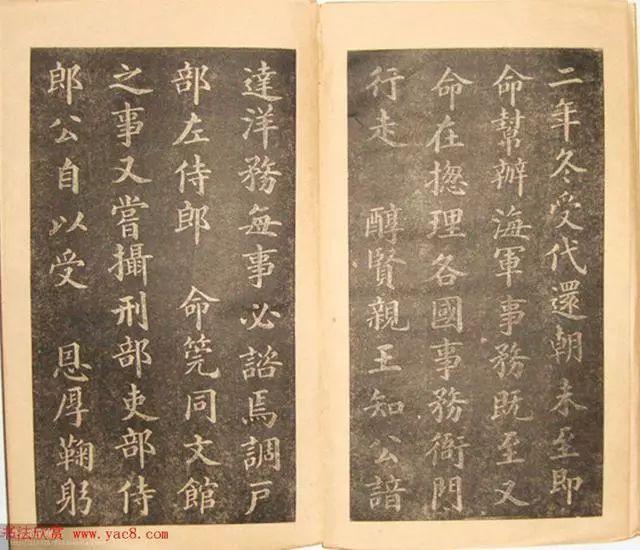 二年冬受代還朝未至即
命幫辦海軍事務既至又
命在揔理各國事務衙門
行走 醇賢親王知公諳
達洋務每事必諮焉調户
部左侍郎 命筦同文館
之事又嘗攝刑部吏部侍
郎公自以受 恩厚鞠躬
书法欣赏 www.yac8.com